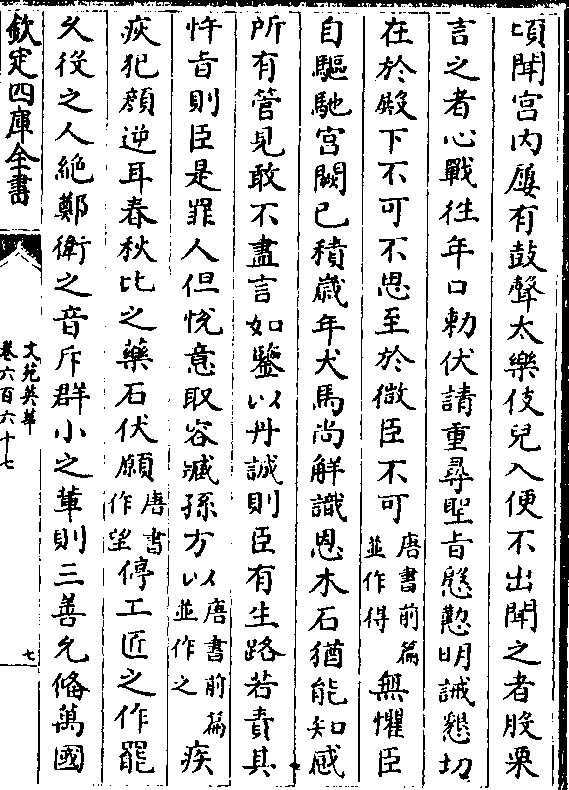 頃聞宮内屢有鼓聲太樂伎兒入便不出聞之者股栗
言之者心戰徃年口勅伏請重尋聖㫖慇懃明誡懇切
在於殿下不可不思至於微臣不可唐書前篇並作得無懼臣
自驅馳宮闕已積嵗年犬馬尚解識恩木石猶能知感
所有管見敢不盡言如鑒以丹誠則臣有生路若責其
忤㫖則臣是罪人但悦意取容臧孫方以唐書前篇並作之疾
疢犯顔逆耳春秋比之藥石伏願唐書作望停工匠之作罷
乆役之人絶鄭衛之音斥群小之輩則三善允備萬國
欽定四庫全書
文苑英華
卷六百六十七
七